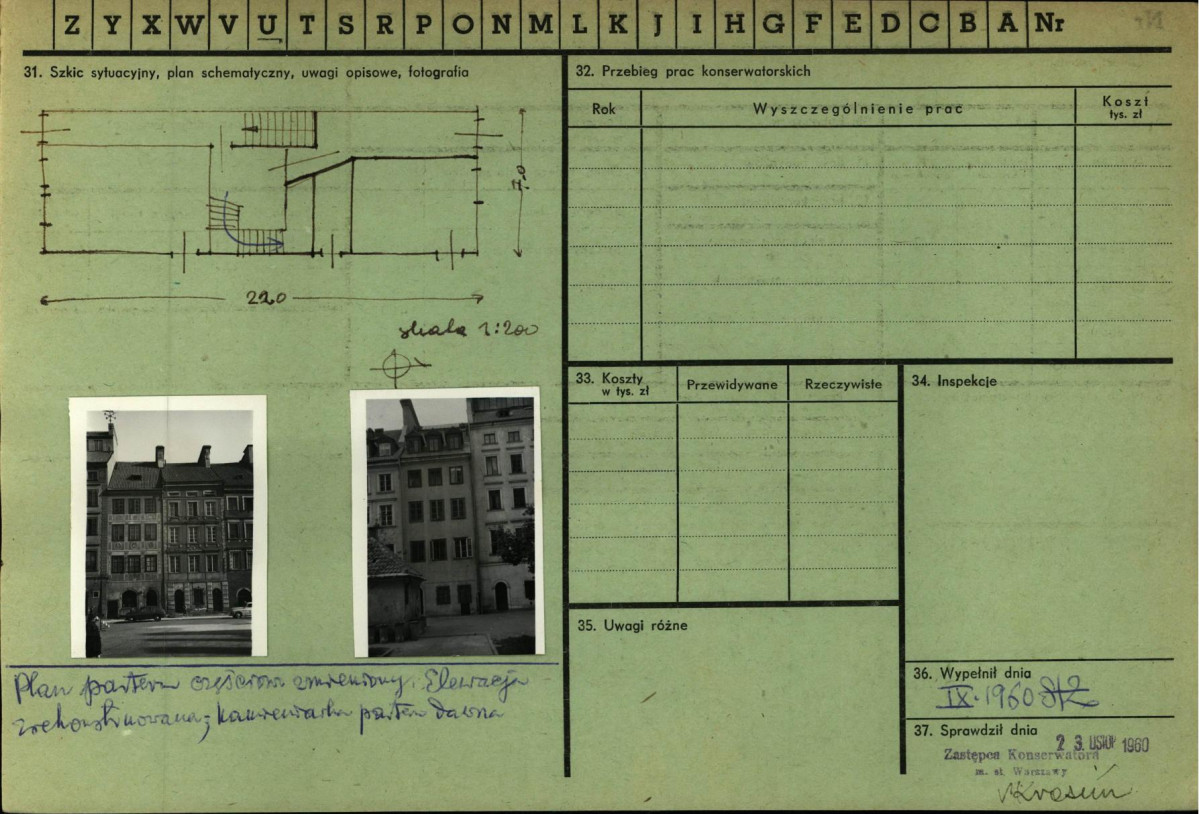 Z Y X W V U T S R P O N M L K J I H G F E D C B A Nr
31. Szkic sytuacyjny, plan schematyczny, uwagi opisowe, fotografia
7,0
220
skala 1:200
Plan parteru częściowo zmieniony. Elewacja
zrekonstruowana; kamieniarka parteru dawna
32. Przebieg prac konserwatorskich
Rok
Wyszczególnienie prac
Koszt
tys. zł
33. Koszty
w tys. zł
Przewidywane
Rzeczywiste
34. Inspekcje
35. Uwagi różne
36. Wypełnił dnia
IX.1960
37. Sprawdził dnia
2 3. LISTOP 1960
Zastępca Konserwatora
m. st. Warszawy